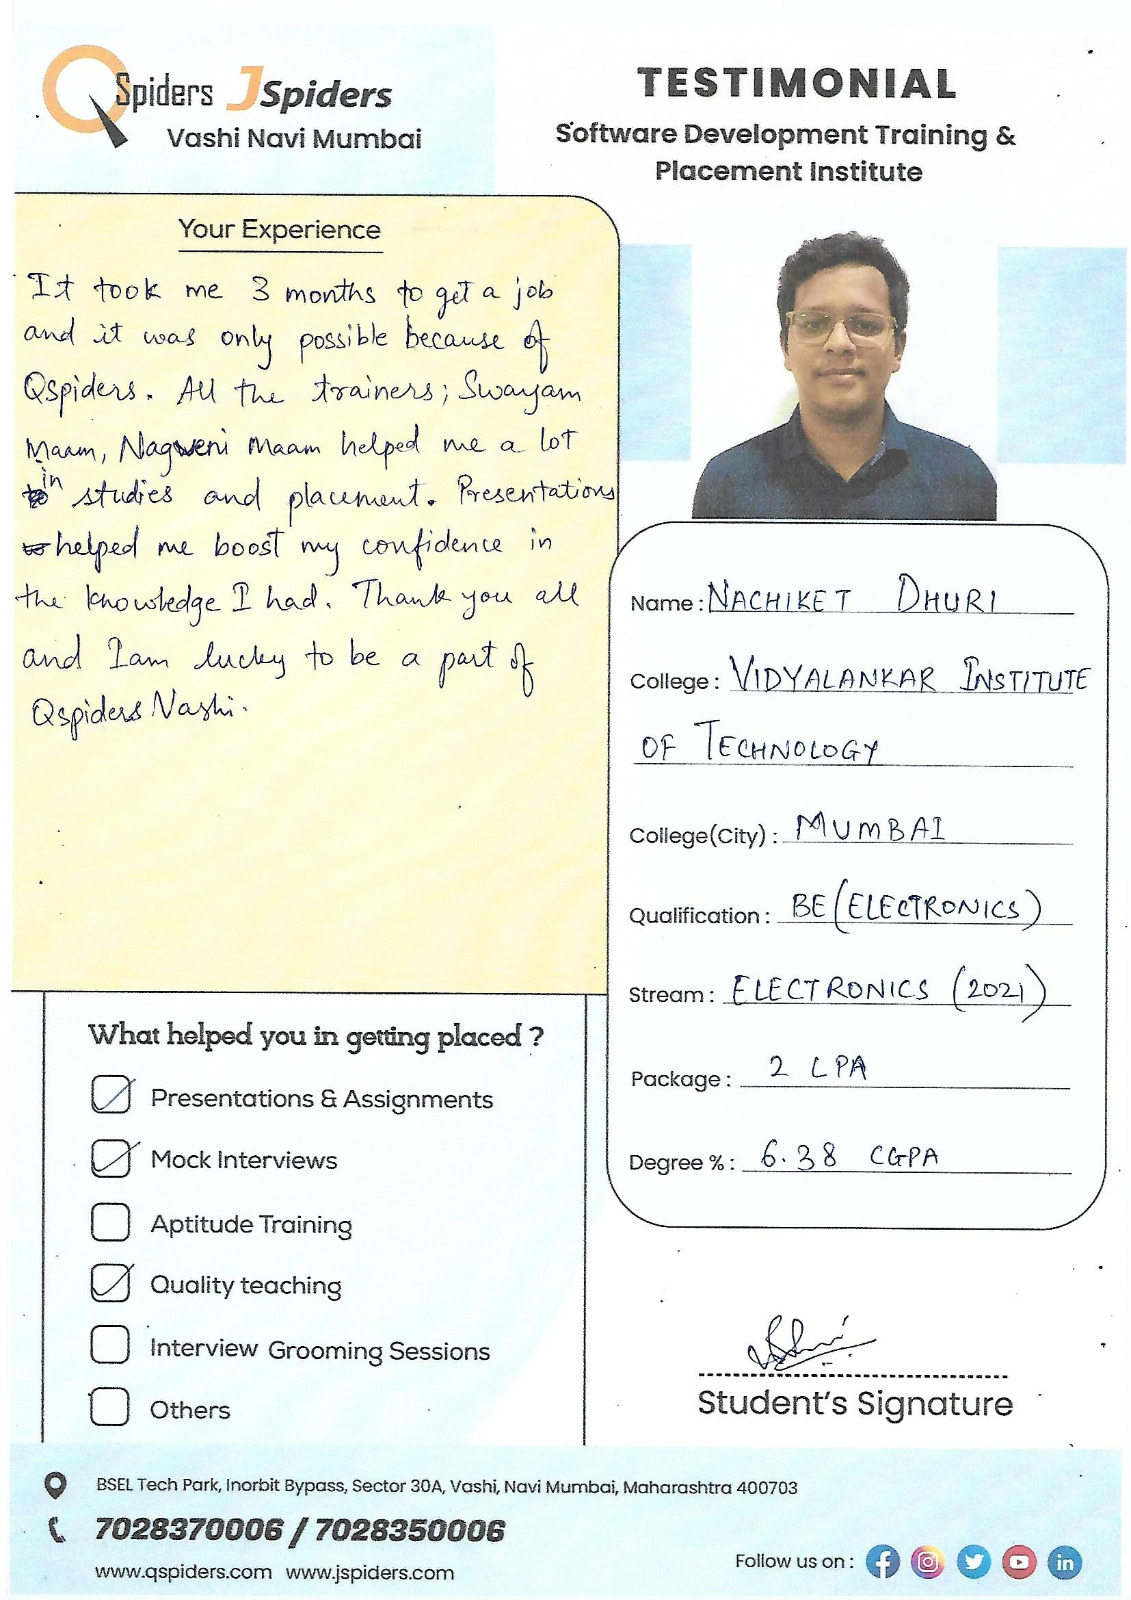 QSpiders JSpiders
Vashi Navi Mumbai
TESTIMONIAL
Software Development Training &
Placement Institute
Your Experience
It took me 3 months to get a job
and it was only possible because of
Qspiders. All the trainers; Swayam
Maam, Nagweni Maam helped me a lot
in studies and placement. Presentations
helped me boost my confidence in
the knowledge I had. Thank you all
and I am lucky to be a part of
Qspiders Vashi.
Name: NACHIKET DHURI
College: VIDYALANKAR INSTITUTE
OF TECHNOLOGY
College(City): MUMBAI
Qualification: BE (ELECTRONICS)
Stream: ELECTRONICS (2021)
Package: 2 LPA
Degree %: 6.38 CGPA
What helped you in getting placed ?
Presentations & Assignments
Mock Interviews
Aptitude Training
Quality teaching
Interview Grooming Sessions
Others
Student's Signature
BSEL Tech Park, Inorbit Bypass, Sector 30A, Vashi, Navi Mumbai, Maharashtra 400703
7028370006 / 7028350006
www.qspiders.com www.jspiders.com
Follow us on: